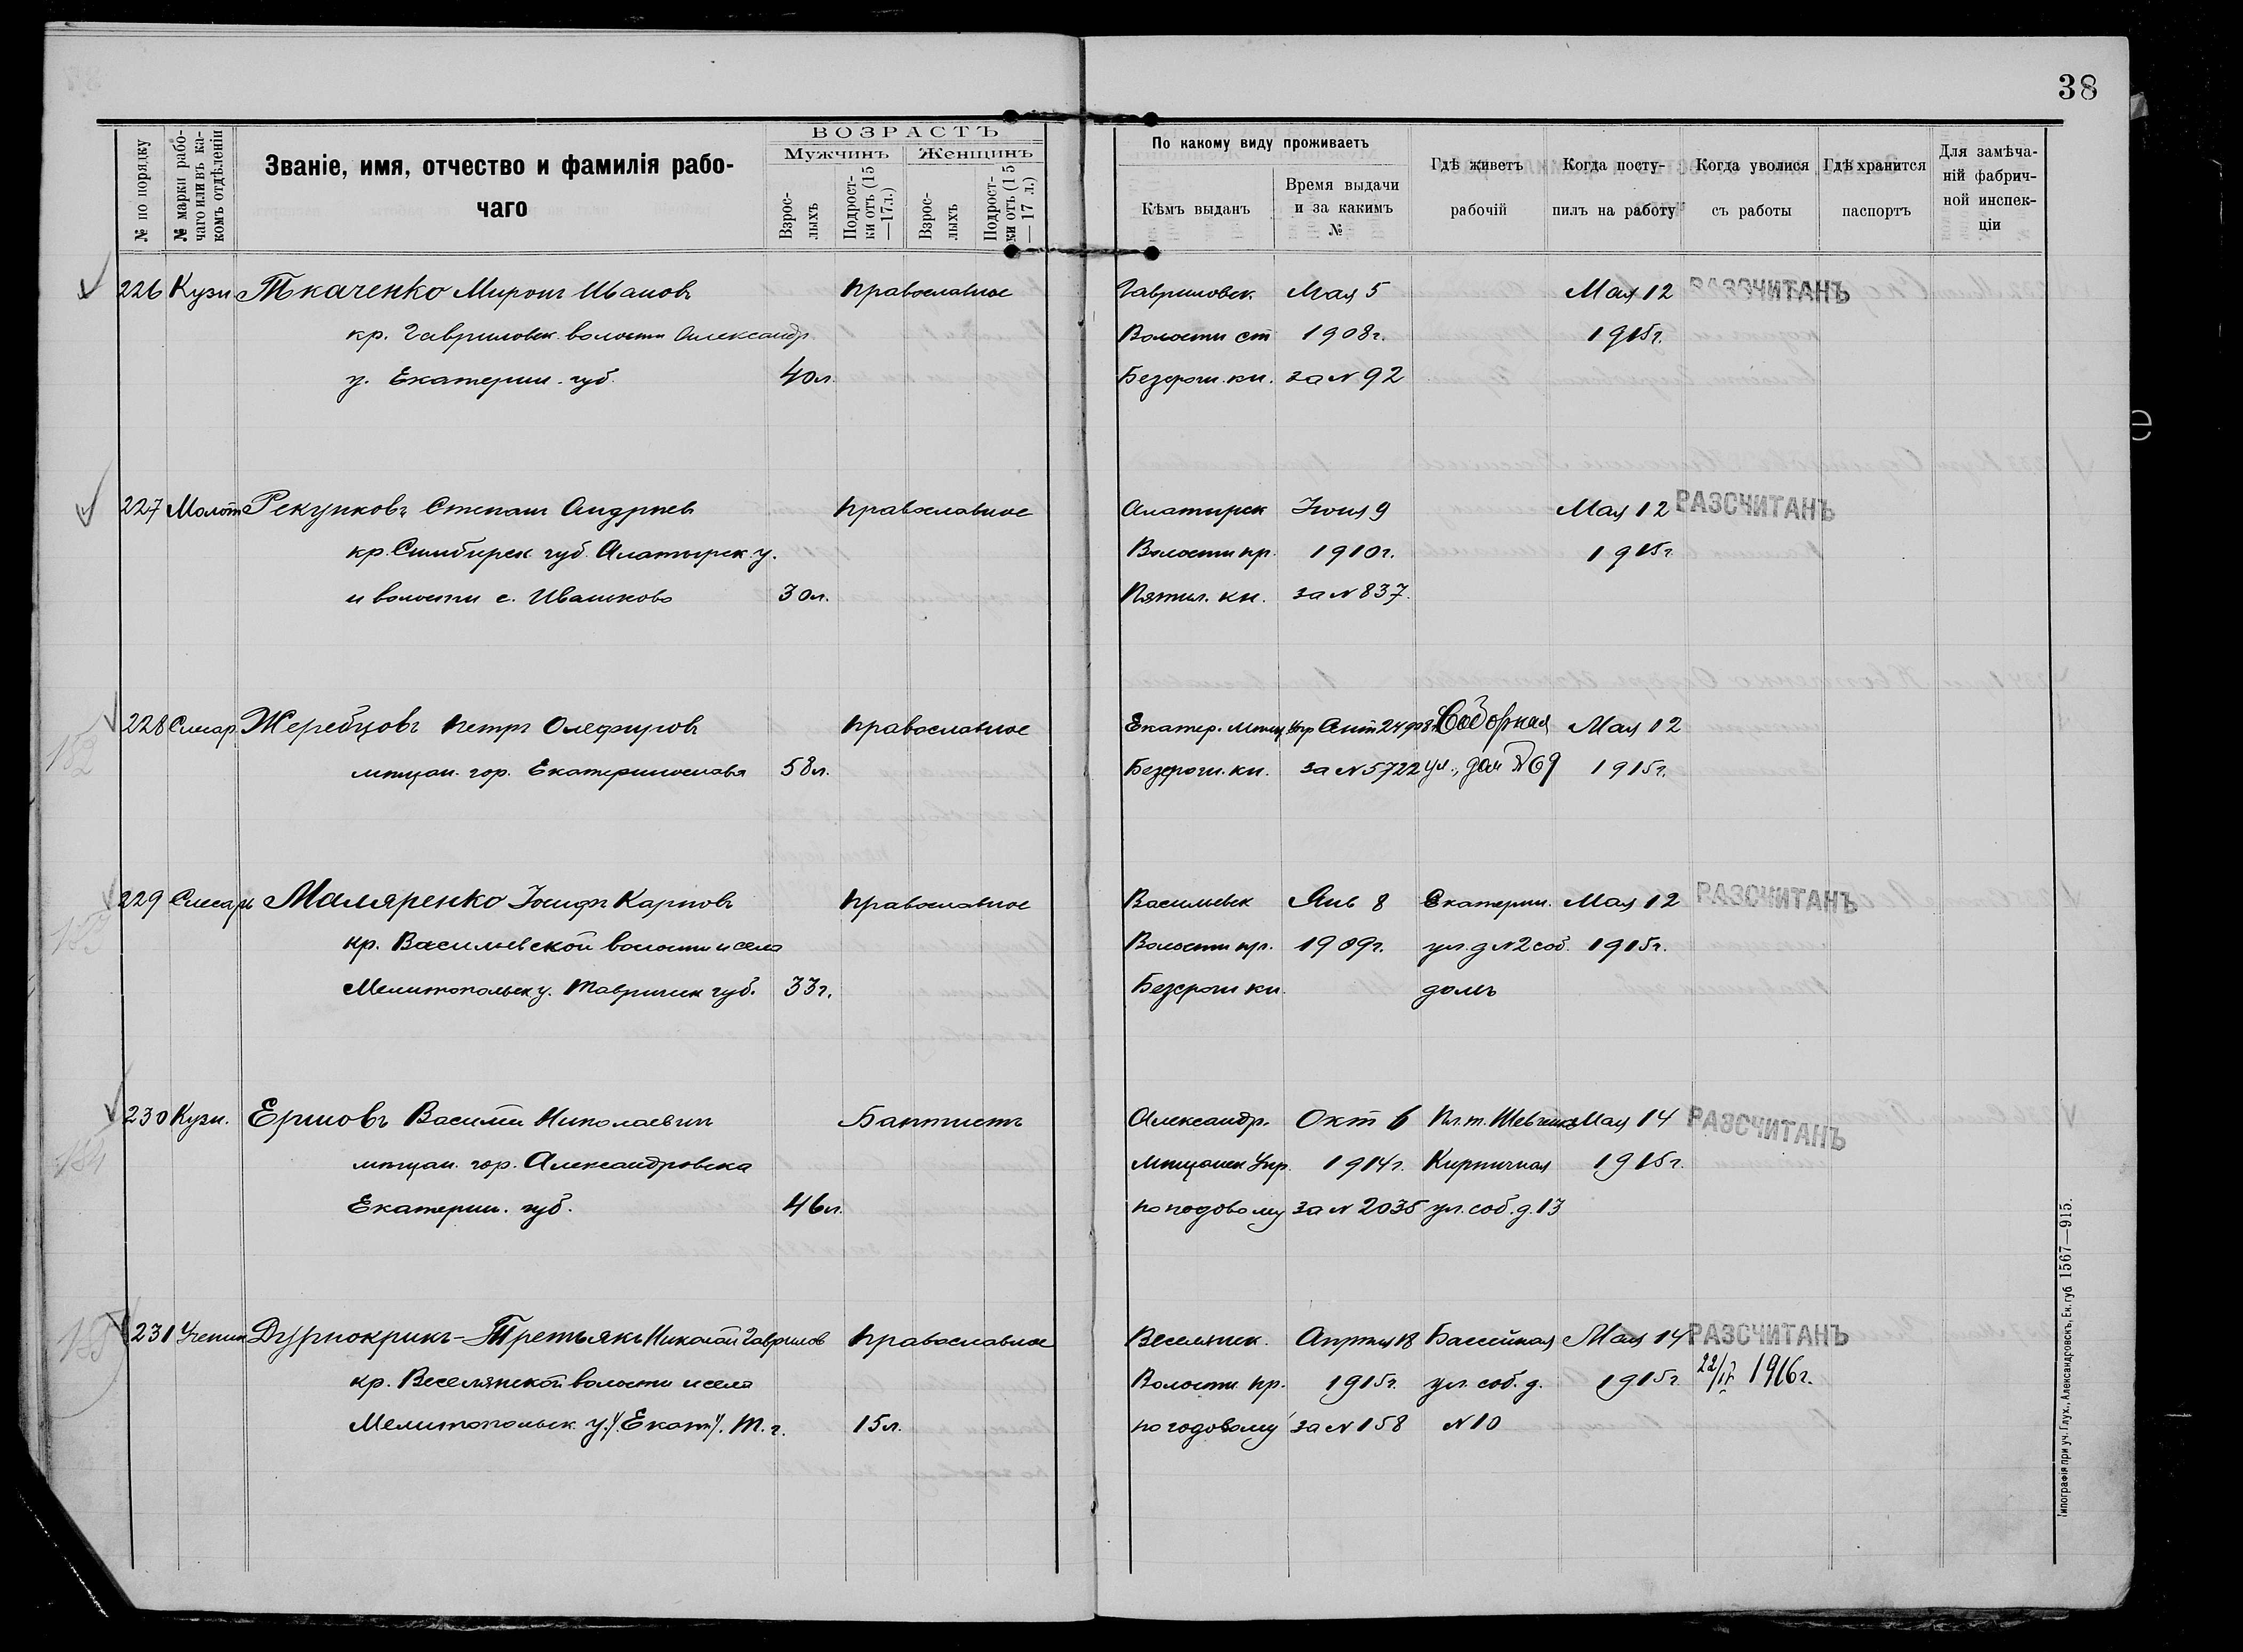 38
№ по порядку
№ марки рабо-
чаго или въ ка-
комъ отдѣленіи
Званіе, имя, отчество и фамилія рабо-
чаго
ВОЗРАСТЪ
Мужчинъ
Женщинъ
Взрос-
лыхъ
Подрост-
ки отъ (15
—17 л.)
Взрос-
лыхъ
Подрост-
ки отъ (15
— 17 л.)
По какому виду проживаетъ
Кѣмъ выданъ
Время выдачи
и за какимъ
№
Гдѣ живетъ
рабочій
Когда посту-
пилъ на работу
Когда уволися
съ работы
Гдѣ хранится
паспортъ
Для замѣча-
ній фабрич-
ной инспек-
ціи
226 Кузн Ткаченко Миронъ Ивановъ православное Гавриловск. Мая 5 Мая 12 РАЗСЧИТАНЪ
кр. Гавриловск. волости Александр. Волости ст 1908г. 1915г.
у. Екатерин. губ. 40л. Безсрочн. кн. за N 92
227 Молот Рекунковъ Степанъ Андреевъ православное Алатырск Іюня 9 Мая 12 РАЗСЧИТАНЪ
кр. Симбирск губ. Алатырск. у. Волости пр. 1910г. 1915г
и волости с. Ивашково 30л. Пятил. кн. за N 837.
228 Слесар. Жеребцовъ Петръ Олеферовъ православное Екатер. мѣщ. упр Сент 24 908 г. Соборная Мая 12
152 мѣщан. гор. Екатеринослава 58л. Безсрочн. кн. за N 5722 ул., дом № 69 1915г.
229 Слесарь Маляренко Іосифъ Карповъ православное Васильевск Янв 8 Екатерин. Мая 12 РАЗСЧИТАНЪ
153 кр. Васильевской волости и села Волости пр. 1909г. ул. д N 2 соб. 1915г.
Мелитопольск у. Таврическ губ. 33г. Безсрочн кн. домъ
230 Кузн. Ершовъ Василій Николаевичъ Баптистъ Александр. Окт 6 Пл. т. Шевченко Мая 14 РАЗСЧИТАНЪ
154 мѣщан. гор. Александровска Мѣщанск Упр. 1914г. Кирпичная 1915г.
Екатерин. губ. 46л. по годовому за N 2035 ул. соб. д. 13
155 231 Ученик Дурнокрикъ-Третьякъ Николай Гаврилов православное Веселянск. Апрѣля 18 Бассейная Мая 14 РАЗСЧИТАНЪ
кр. Веселянской волости и села Волости пр. 1915г. ул. соб. д. 1915г. 22/IV 1916г.
Мелитопольск. у. "Екат". Т. г. 15л. по годовому за N 158 N 10
Типографія при уч. Глух., Александровскъ, Ек. губ 1567—915.